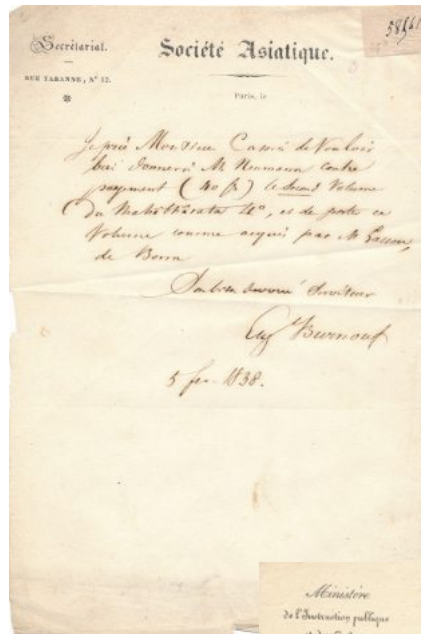 58561
Secrétariat.
Société Asiatique.
RUE TARANNE, N° 12.
Paris, le
Je prie Monsieur Cassin de Vouloir
bien donner à Mr Neumann contre
payement (40 f) le second Volume
du Mahabharata 4°, et de porter ce
Volume comme acquis par Mr Lassen,
de Bonn
dévoué Serviteur
Eug Burnouf
5 fev. 1838.
Ministère
de l'Instruction publique